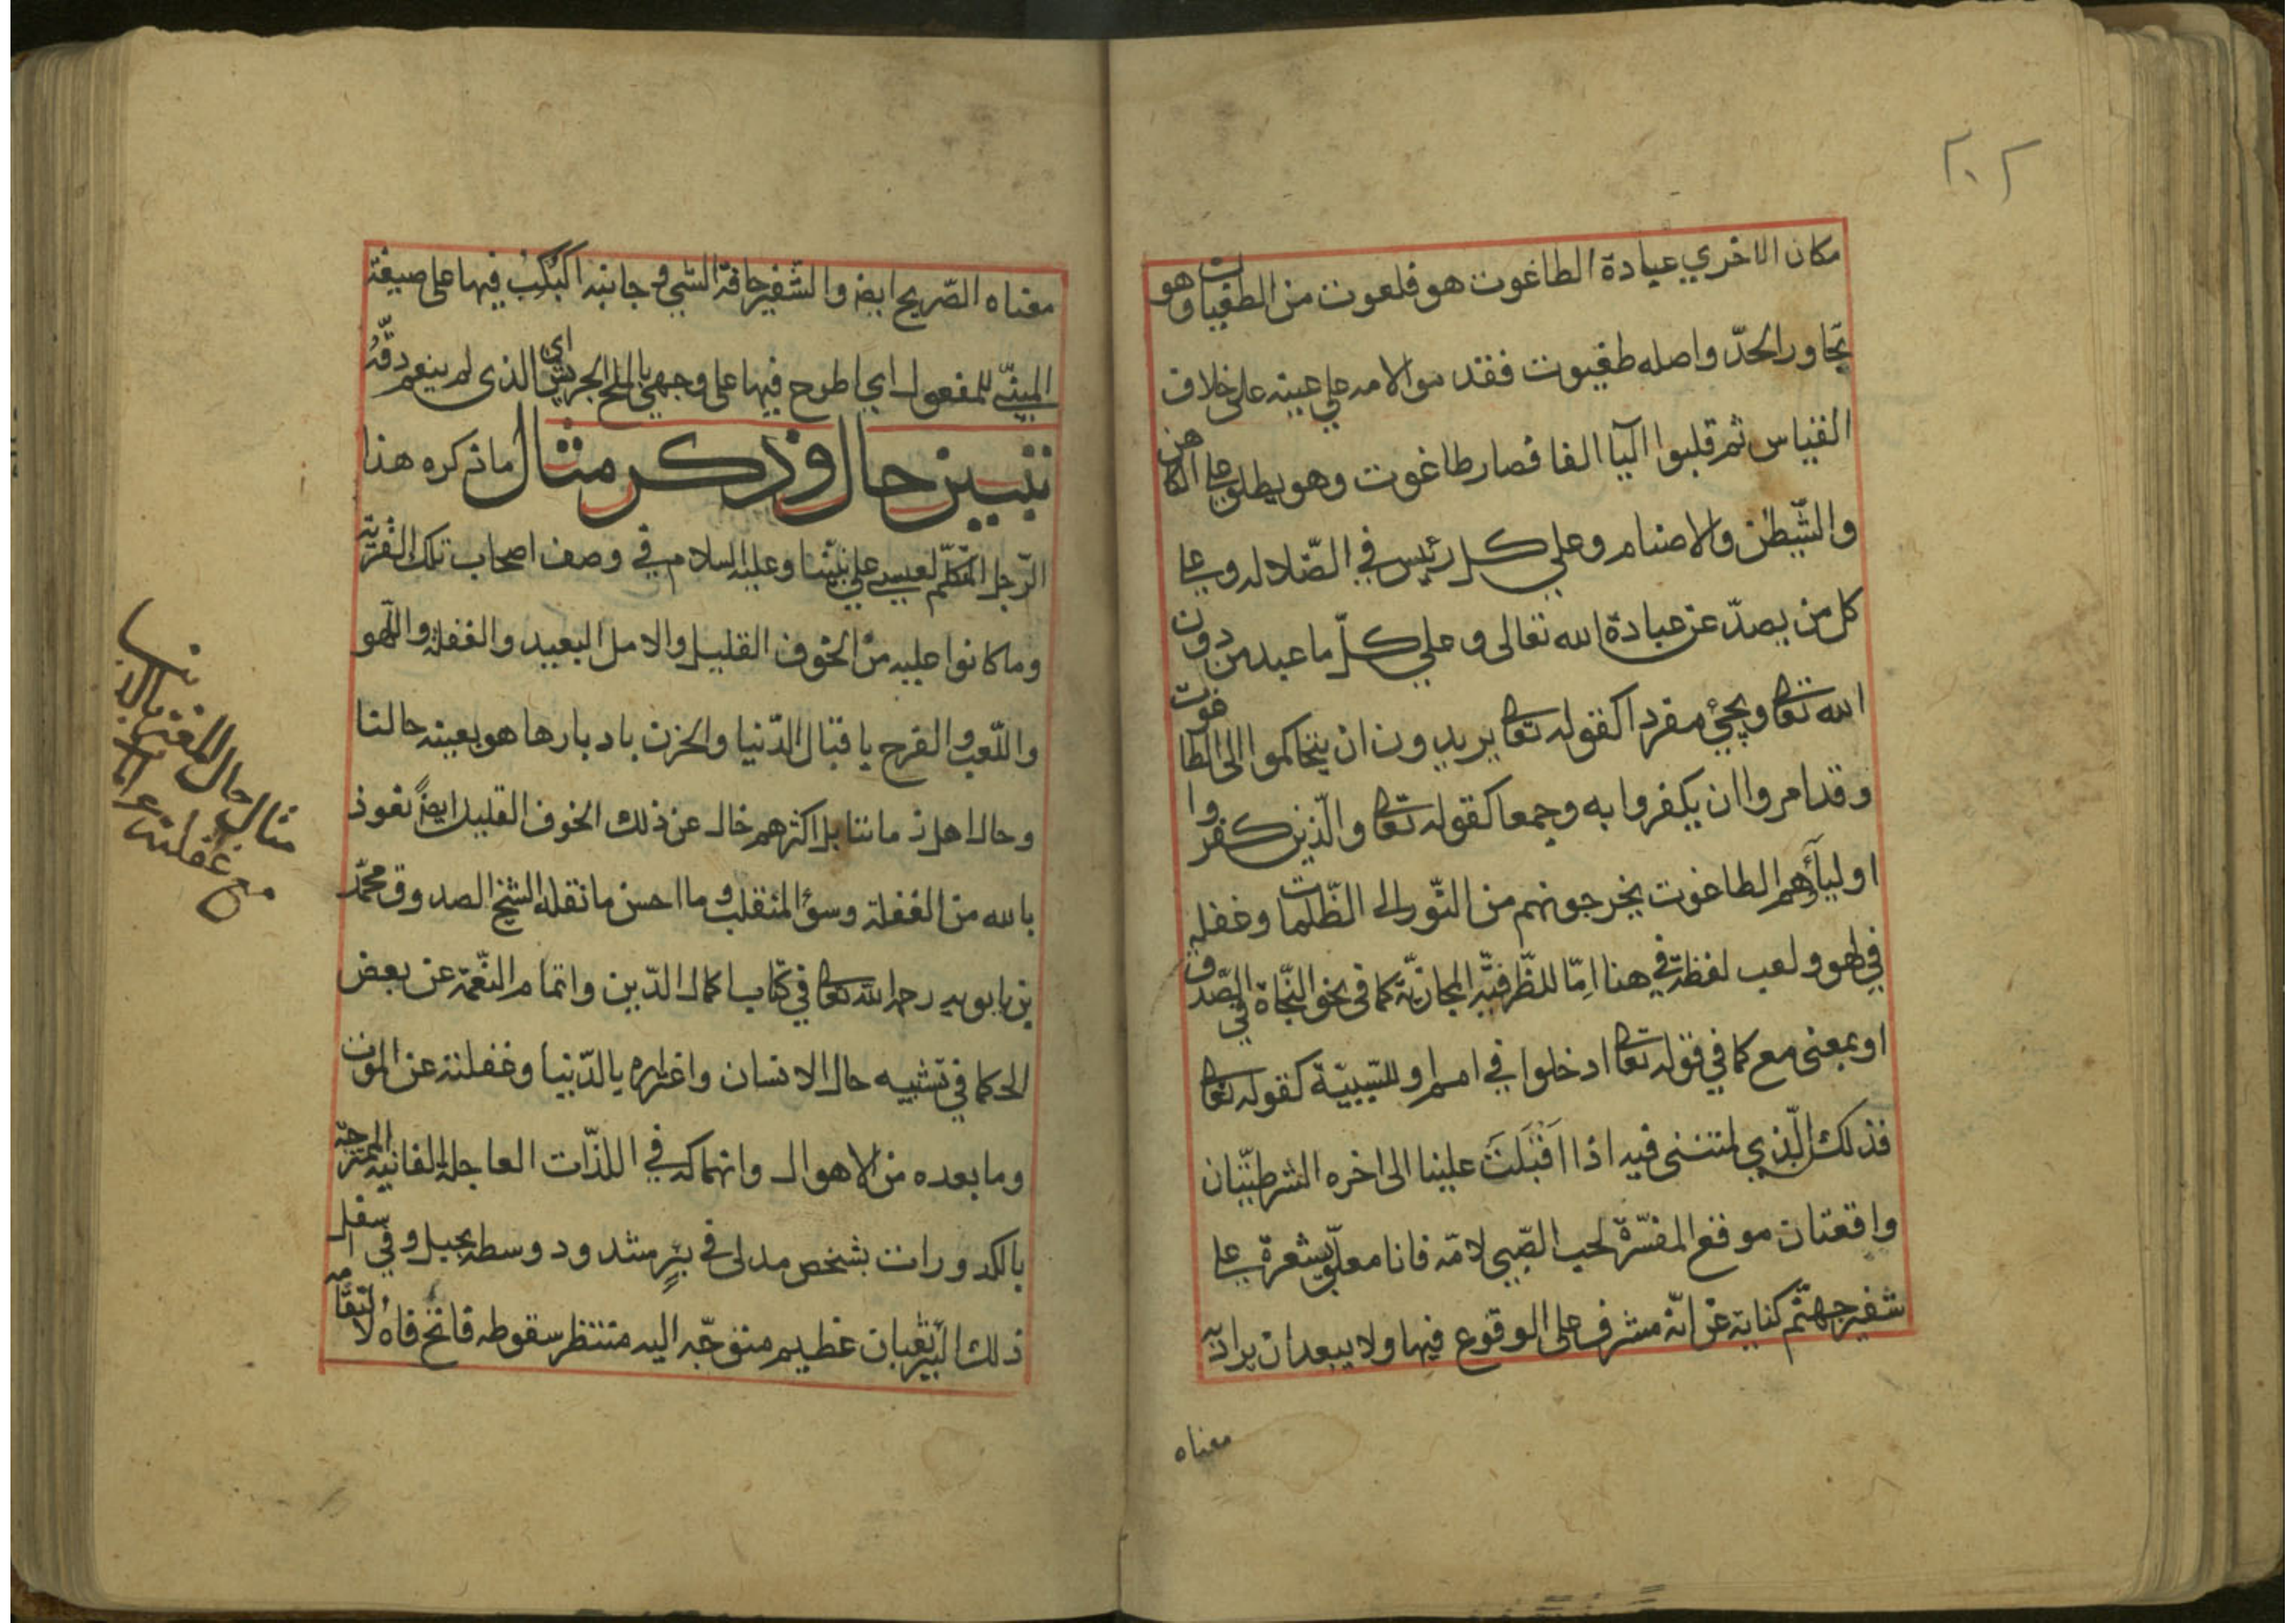 ٢٠٢
مكان الاخري عبادة الطاغوت هو فلعوت من الطغيات وهو
تجاور الحدّ واصله طغيوت فقدموا لامه علي عينه على خلاف
القياس ثم قلبوا اليا الفا فصار طاغوت وهو يطلق علي الكاهن
والشّيطن والاصنام وعلي كل رئيس في الضّلاله وعلي
كل من يصدّ عن عبادة الله تعالى وعلي كلّ ما عبد من دون
الله تعا ويجئ مفردا كقوله تعا يريدون ان يتحاكموا الى الطاغوت
وقد امروا ان يكفروا به وجمعا كقوله تعا والّذين كفروا
اولياؤهم الطاغوت يخرجونهم من النّور الى الظّلمات وغفله
في لهو ولعب لفظة في هنا امّا للظّرفيّة المجازيّة كما في نحو النّجاة في الصّدق
او بمعنى مع كما في قوله تعا ادخلوا في امم او للسّببيّة كقوله تعا
فذلك الّذي لمتننى فيه اذا اقْبَلَتْ علينا الى اخره الشرطيّتان
واقعتان موقع المفسّرة لحب الصّبي لامّه فانا معلّق بشعرة على
شفير جهنّم كناية عن انّه مشرف على الوقوع فيها ولا يبعد ان يراد به
معناه
معناه الصّريح ايض والشّفير حافة الشي وجانبه اكبكب فيها على صيغة
المبنيّ للمفعول اي اطرح فيها على وجهي بالملح الجريش اي الذى لم ينعم دقّه
تبيين حال وذكر مثال ما ذكره هذا
الرّجل المتكلّم لعيسى علي نبيّنا وعليه السلام في وصف اصحاب تلك القرية
وما كانوا عليه من الخوف القليل والامل البعيد والغفلة واللّهو
واللّعب والفرح باقبال الدّنيا والحزن بادبارها هو بعينه حالنا
وحال اهل زماننا بل اكثرهم خال عن ذلك الخوف القليل ايضً نعوذ
بالله من الغفلة وسؤ المنقلب وما احسن ما نقله الشيخ الصدوق محمّد
بن بابويه رحمه الله تعا في كتاب اكمال الدّين واتمام النّعمة عن بعض
الحكما في تشبيه حال الانسان واغتراره بالدّنيا وغفلته عن الموت
وما بعده من الاهوال وانهماكه في اللذّات العاجلة الفانية الممتزجة
بالكدورات بشخص مدلى في بئرٍ مشدود وسطه بحبل وفي اسفل
ذلك البئر ثعبان عظيم متوجّه اليه منتظر سقوطه فاتح فاه لالتقامه
مثال حال المغتر بالدنيا
مع غفلته عن